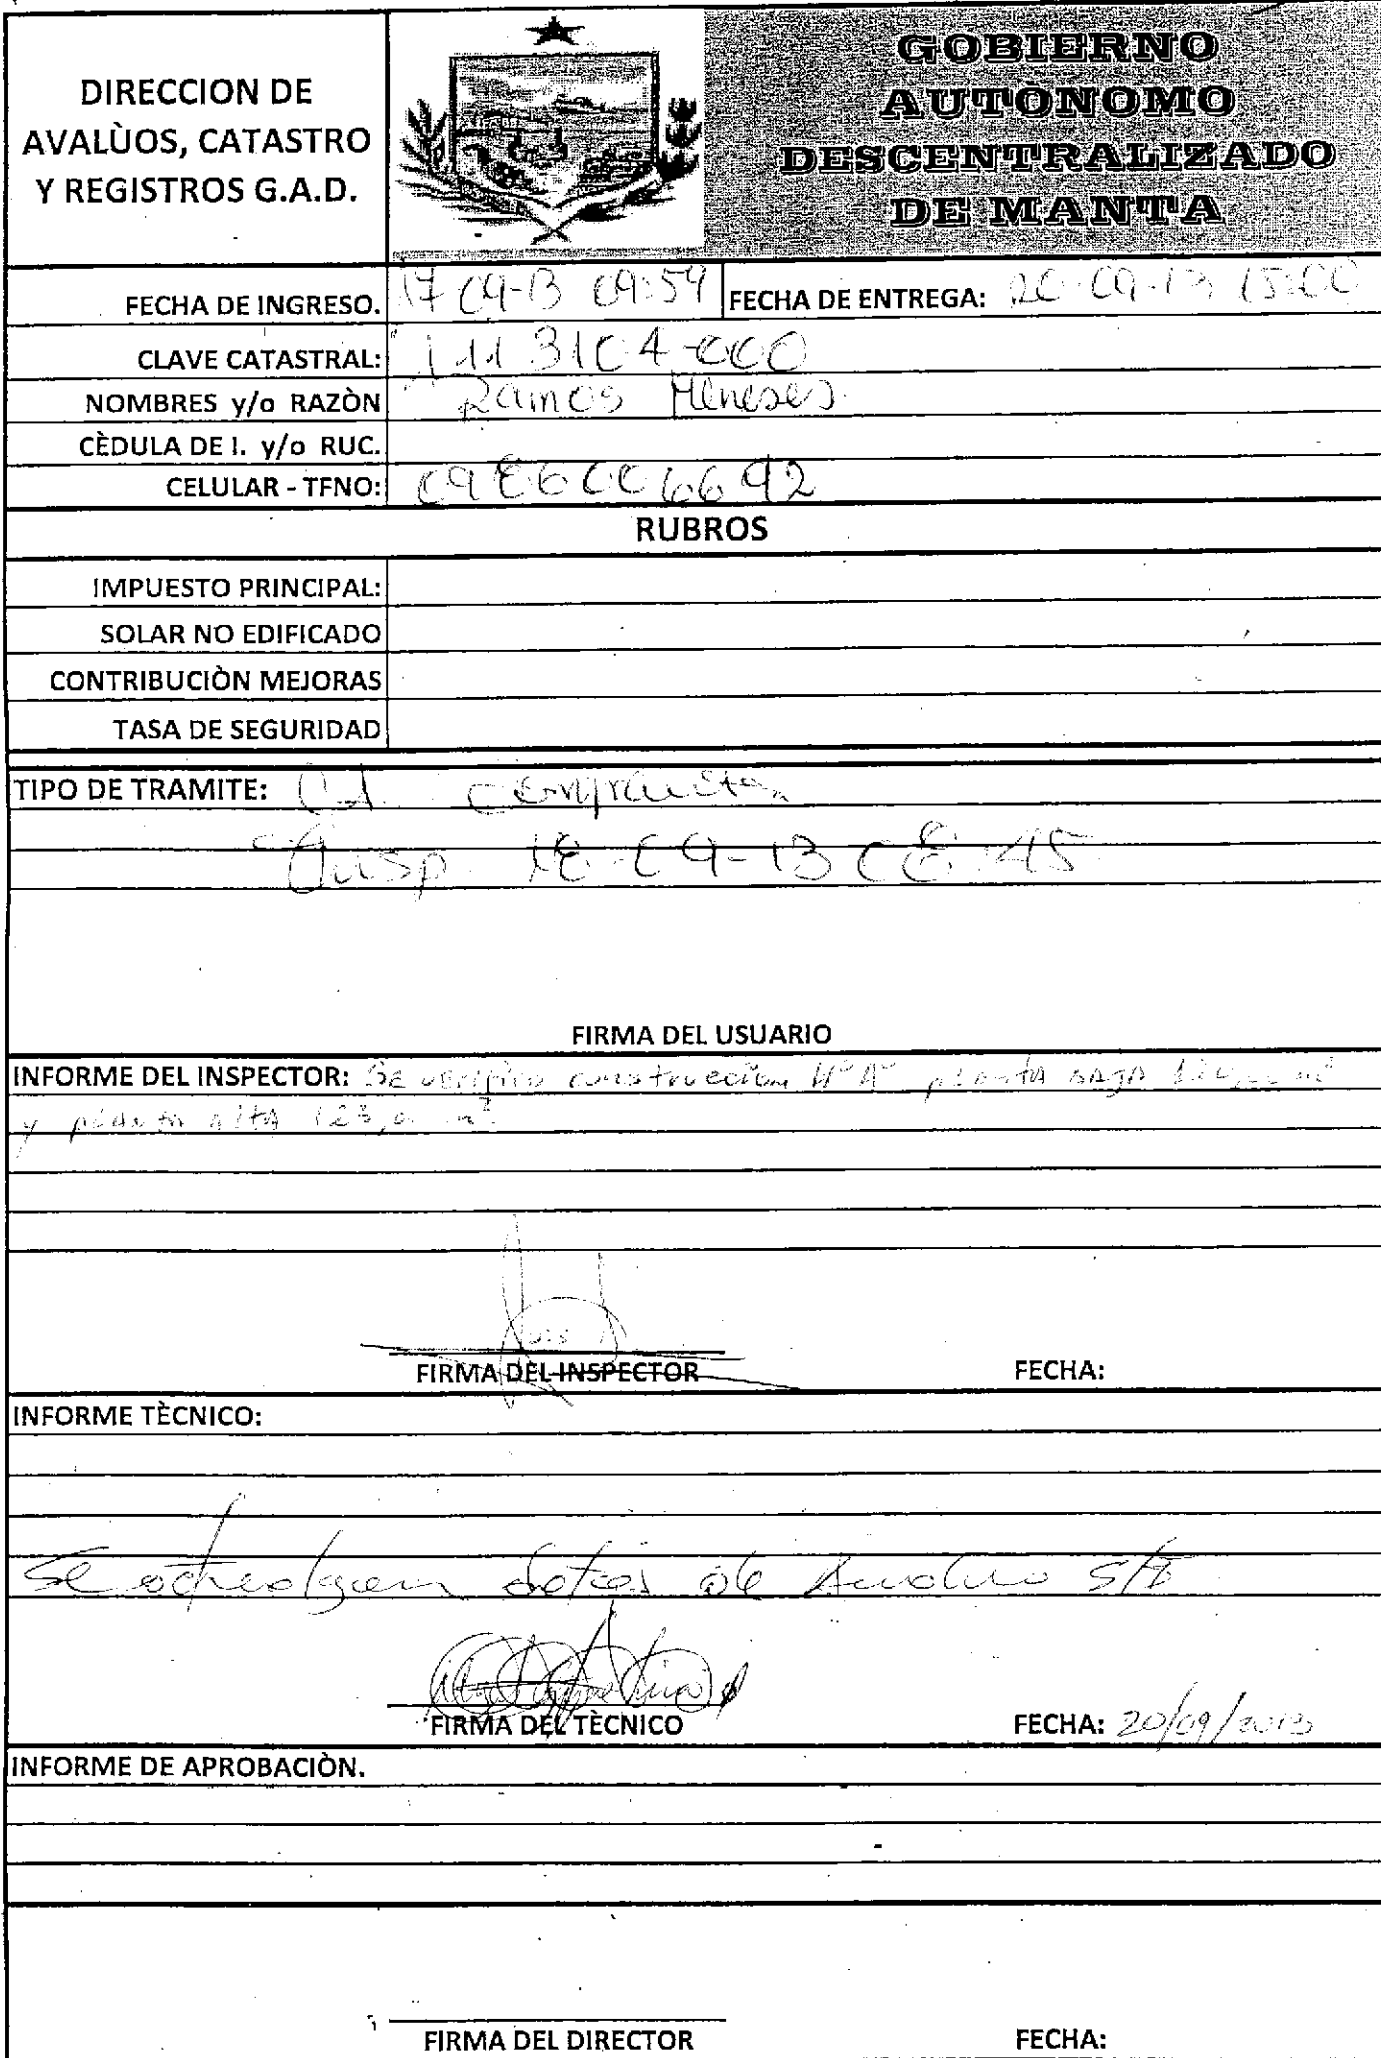 DIRECCION DE
AVALÙOS, CATASTRO
Y REGISTROS G.A.D.
GOBIERNO
AUTÒNOMO
DESCENTRALIZADO
DE MANTA
FECHA DE INGRESO. 17-09-13 09:59 FECHA DE ENTREGA: 20-09-13 15:00
CLAVE CATASTRAL: 1113104-000
NOMBRES y/o RAZÒN Ramos Meneses
CÈDULA DE I. y/o RUC.
CELULAR - TFNO: 0980066692
RUBROS
IMPUESTO PRINCIPAL:
SOLAR NO EDIFICADO
CONTRIBUCIÒN MEJORAS
TASA DE SEGURIDAD
TIPO DE TRAMITE: compraventa
Insp. 18-09-13 08:45
FIRMA DEL USUARIO
INFORME DEL INSPECTOR: Se verifico construccion HºAº planta baja m²
y planta alta 123,00 m²
FIRMA DEL INSPECTOR FECHA:
INFORME TÈCNICO:
Se datos de Avaluo
FIRMA DEL TÈCNICO FECHA: 20/09/2013
INFORME DE APROBACIÒN.
FIRMA DEL DIRECTOR FECHA: